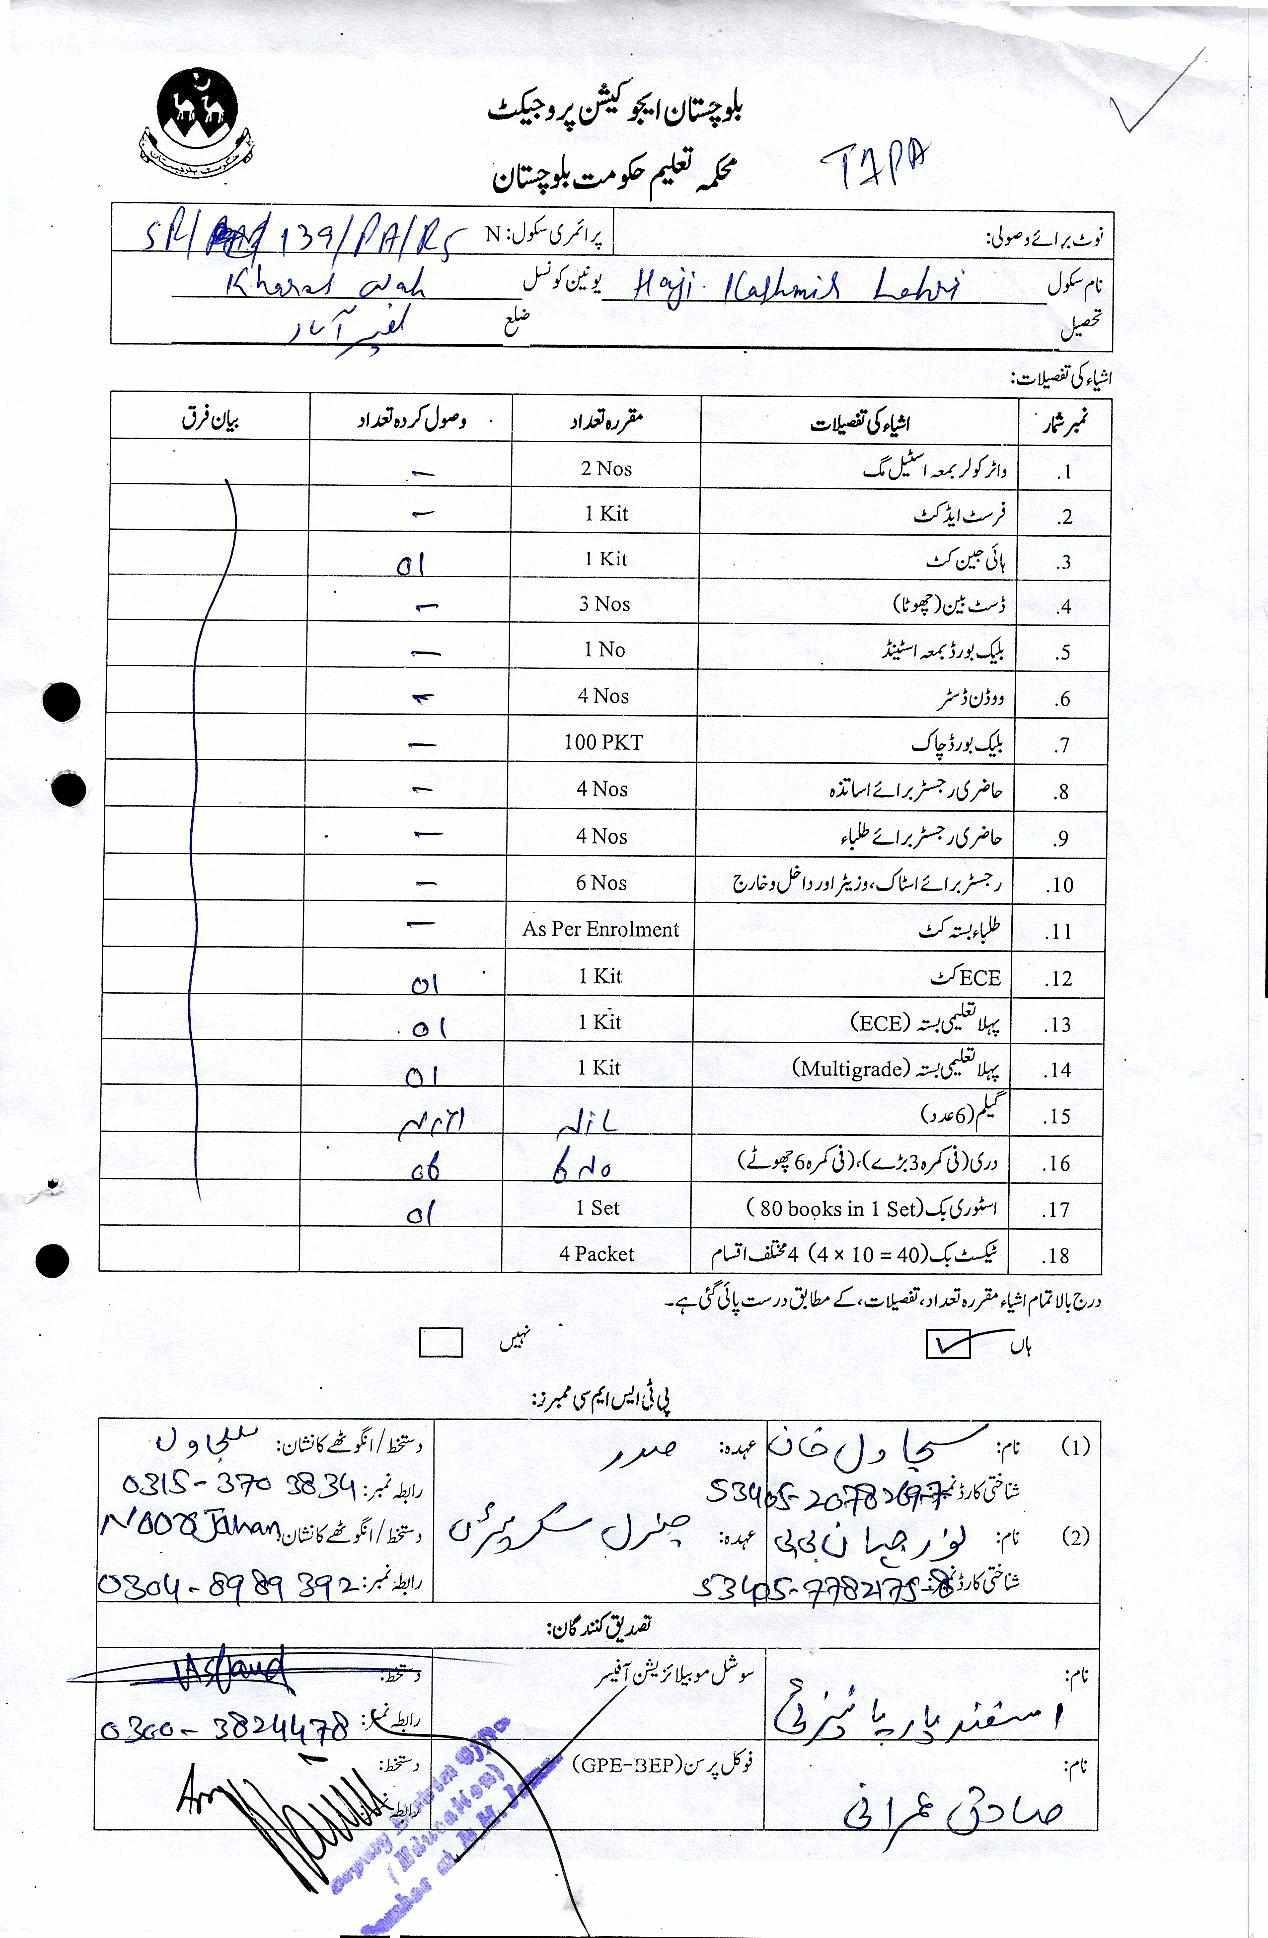 بلوچستان ایجوکیشن پروجیکٹ
محکمہ تعلیم حکومت بلوچستان
نوٹ برائے وصولی: پرائمری سکول: N SP/ 139/PA/RS
نام سکول Haji Kashmir Lehri یونین کونسل Kharal wah
تحصیل ضلع نصیر آباد
اشیاء کی تفصیلات:
نمبر شمار اشیاء کی تفصیلات مقررہ تعداد وصول کردہ تعداد بیان فرق
1. واٹر کولر بمعہ اسٹیل مگ 2 Nos –
2. فرسٹ ایڈ کٹ 1 Kit –
3. ہائی جین کٹ 1 Kit 01
4. ڈسٹ بین (چھوٹا) 3 Nos –
5. بلیک بورڈ بمعہ اسٹینڈ 1 No –
6. ووڈن ڈسٹر 4 Nos –
7. بلیک بورڈ چاک 100 PKT –
8. حاضری رجسٹر برائے اساتذہ 4 Nos –
9. حاضری رجسٹر برائے طلباء 4 Nos –
10. رجسٹر برائے اسٹاک، وزیٹر اور داخل و خارج 6 Nos –
11. طلباء بستہ کٹ As Per Enrolment –
12. ECE کٹ 1 Kit 01
13. پہلا تعلیمی بستہ (ECE) 1 Kit 01
14. پہلا تعلیمی بستہ (Multigrade) 1 Kit 01
15. گیلم (6 عدد) Nil
16. دری (فی کمرہ 3 بڑے)، (فی کمرہ 6 چھوٹے) 6 No 06
17. اسٹوری بک (80 books in 1 Set) 1 Set 01
18. ٹیکسٹ بک (4 × 10 = 40) 4 مختلف اقسام 4 Packet
درج بالا تمام اشیاء مقررہ تعداد، تفصیلات، کے مطابق درست پائی گئی ہے۔
ہاں ✓ نہیں
پی ٹی ایس ایم سی ممبرز:
(1) نام: سچاول خان عہدہ: صدر دستخط/انگوٹھے کا نشان: سچاول
شناختی کارڈ نمبر: 53405-2078269-7 رابطہ نمبر: 0315-3703834
(2) نام: نور جہان بی بی عہدہ: جنرل سکریٹری دستخط/انگوٹھے کا نشان: Noor Jahan
شناختی کارڈ نمبر: 53405-7782175-8 رابطہ نمبر: 0304-8989392
تصدیق کنندگان:
نام: اسفندیار سوشل موبیلائزیشن آفیسر دستخط:
رابطہ نمبر: 0300-3824478
نام: صادق عمرانی فوکل پرسن (GPE-BEP) دستخط:
رابطہ
Deputy
(Education)